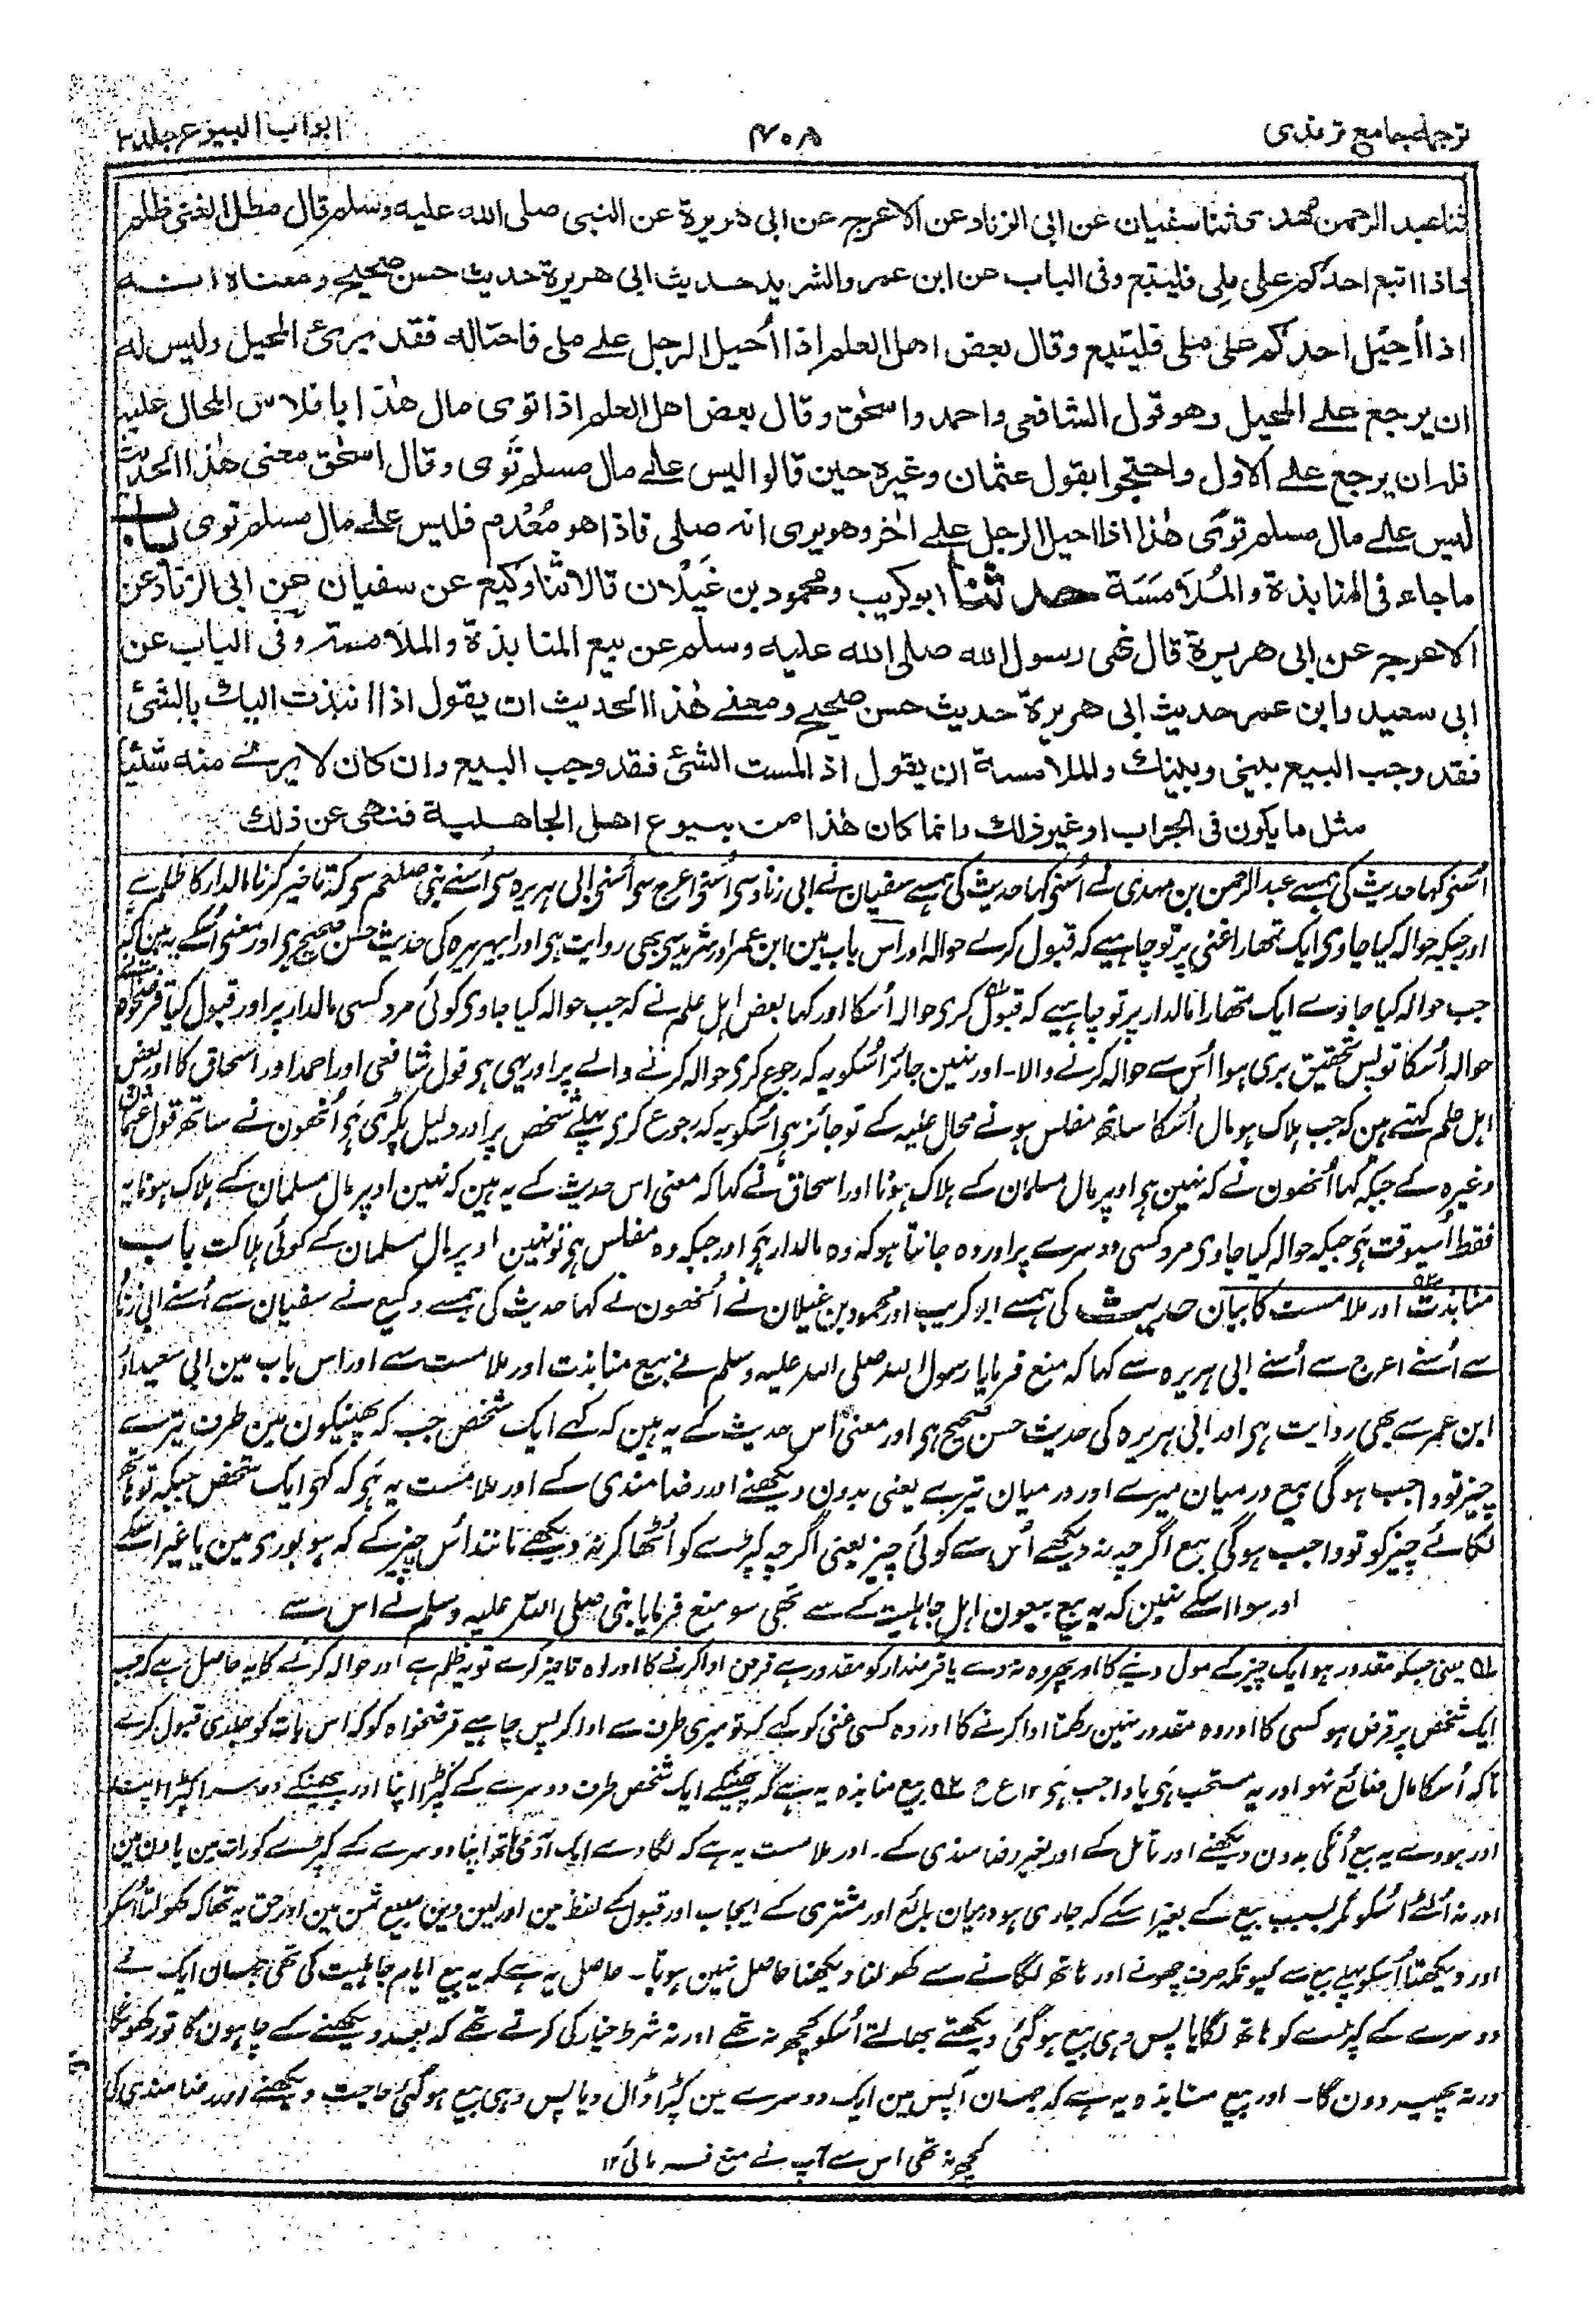 ترجمہ جامع ترمذی
۴۰۸
ابواب البیوع جلد ۲
ثنا عبد الرحمن بن مهدی ثنا سفیان عن ابی الزناد عن الاعرج عن ابی هریرة عن النبی صلی الله علیه وسلم قال مطل الغنی ظلم
فاذا اتبع احدکم علی ملی فلیتبع وفی الباب عن ابن عمر والشرید حدیث ابی هریرة حدیث حسن صحیح ومعناه انه
اذا اُحِیل احدکم علی ملی فلیتبع وقال بعض اهل العلم اذا اُحیل الرجل علے ملی فاحتاله فقد بَرِئ المحیل ولیس له
ان یرجع علے المحیل وهو قول الشافعی واحمد واسحٰق وقال بعض اهل العلم اذا توی مال هٰذا بافلاس المحال علیه
فله ان یرجع علے الاول واحتجوا بقول عثمان وغیره حین قالوا لیس علے مال مسلم تَوی وقال اسحٰق معنی هٰذا الحدیث
لیس علے مال مسلم توی هٰذا اذا احیل الرجل علے اٰخر وهو یری انه ملی فاذا هو مُعْدِم فلیس علے مال مسلم توی باب
ما جاء فی المنابذة والمُلَامَسَة حدثنا ابو کریب ومحمود بن غَیْلان قالا ثنا وکیع عن سفیان عن ابی الزناد عن
الاعرج عن ابی هریرة قال نهی رسول الله صلی الله علیه وسلم عن بیع المنابذة والملامسة وفی الباب عن
ابی سعید وابن عمر حدیث ابی هریرة حدیث حسن صحیح ومعنے هٰذا الحدیث ان یقول اذا انبذت الیك بالشئ
فقد وجب البیع بینی وبینك والملامسة ان یقول اذ المست الشئ فقد وجب البیع وان کان لا یرے منه شئیا
مثل ما یکون فی الجراب او غیر ذلك وانما کان هٰذا من بیوع اهل الجاهلیة فنهی عن ذلك
اُسنی کہا حدیث کی ہمسے عبد الرحمن بن مہدی نے اُسنی کہا حدیث کی ہمسے سفیان نے ابی زناد سی اُسنی اعرج سی اُسنی ابی ہریرہ سی اُسنے نبی صلعم سی کہ تاخیر کرنا مالدار کا ظلم ہے
اور جبکہ حوالہ کیا جاوی ایک تمھارا غنی پر تو چاہیے کہ قبول کرے حوالہ اور اس باب مین ابن عمر اور شرید سی بھی روایت ہی اور ابو ہریرہ کی حدیث حسن صحیح ہی اور معنی اُسکے یہ ہین کہ
جب حوالہ کیا جاوے ایک تمھارا مالدار پر تو چاہیے کہ قبول کری حوالہ اُسکا اور کہا بعض اہل علم نے کہ جب حوالہ کیا جاوی کوئی مرد کسی مالدار پر اور قبول کیا قرضخواہ
حوالہ اُسکا تو پس تحقیق بری ہوا اُس سے حوالہ کرنے والا۔ اور نہین جائز اُسکو یہ کہ رجوع کری حوالہ کرنے والے پر اور یہی ہی قول شافعی اور احمد اور اسحاق کا اور بعض
اہل علم کہتے ہین کہ جب ہلاک ہو مال اُسکا ساتھ مفلس ہونے محال علیہ کے تو جائز ہی اُسکو یہ کہ رجوع کری پہلے شخص پر اور دلیل پکڑی ہی اُنھون نے ساتھ قول عثمان
وغیرہ کے جبکہ کہا اُنھون نے کہ نہین ہی اوپر مال مسلمان کے ہلاک ہونا اور اسحاق نے کہا کہ معنی اس حدیث کے یہ ہین کہ نہین اوپر مال مسلمان کے ہلاک ہونا یہ
فقط اُسیوقت ہی جبکہ حوالہ کیا جاوی مرد کسی دوسرے پر اور وہ جانتا ہو کہ وہ مالدار ہی اور جبکہ وہ مفلس ہی تو نہین اوپر مال مسلمان کے کوئی ہلاکت باب
منابذت اور ملامست کا بیان حدیث کی ہمسے ابو کریب اور محمود بن غیلان نے اُنھون نے کہا حدیث کی ہمسے وکیع نے سفیان سے اُسنے ابی زناد
سے اُسنے اعرج سے اُسنے ابی ہریرہ سے کہا کہ منع فرمایا رسول اللہ صلی اللہ علیہ وسلم نے بیع منابذت اور ملامست سے اور اس باب مین ابی سعید اور
ابن عمر سے بھی روایت ہی اور ابی ہریرہ کی حدیث حسن صحیح ہی اور معنی اس حدیث کے یہ ہین کہ کہے ایک شخص جب کہ پھینکون مین طرف تیرے
چیز تو واجب ہوگی بیع درمیان میرے اور درمیان تیرے یعنی بدون دیکھنے اور رضامندی کے اور ملامست یہ ہی کہ کہی ایک شخص جبکہ تو ہاتھ
لگائے چیز کو تو واجب ہوگی بیع اگرچہ نہ دیکھے اُس سے کوئی چیز یعنی اگرچہ کپڑے کو اُٹھا کر نہ دیکھے مانند اُس چیز کے کہ ہو بوری مین یا غیر اسکے
اور سوا اسکے نہین کہ یہ بیع بیعون اہل جاہلیت کے سے تھی سو منع فرمایا نبی صلی اللہ علیہ وسلم نے اس سے
۵۱ یعنی جسکو مقدور ہو ایک چیز کے مول دینے کا اور پھر وہ نہ دے یا قرضدار کو مقدور ہے قرض ادا کرنے کا اور وہ تاخیر کرے تو یہ ظلم ہے اور حوالہ کرنے کا یہ حاصل ہے کہ جب
ایک شخص پر قرض ہو کسی کا اور وہ مقدور نہین رکھتا ادا کرنے کا اور وہ کسی غنی کو کہے کہ تو میری طرف سے ادا کر پس چاہیے قرضخواہ کو کہ اس بات کو جلدی قبول کرے
تاکہ اُسکا مال ضائع نہو اور یہ مستحب ہی یا واجب ہی ۱۲ ع ح ۵۲ بیع منابذہ یہ ہے کہ پھینکے ایک شخص طرف دوسرے کے کپڑا اپنا اور پھینکے دوسرا کپڑا اپنا
اور ہووے یہ بیع اُنکی بدون دیکھنے اور تامل کے اور بغیر رضامندی کے۔ اور ملامست یہ ہے کہ لگاوے ایک آدمی ہاتھ اپنا دوسرے کے کپڑے کو رات مین یا دن مین
اور نہ اُلٹے اُسکو مگر بسبب بیع کے بغیر اسکے کہ جاری ہو درمیان بائع اور مشتری کے ایجاب اور قبول کے لفظ مین اور لین دین مبیع ثمن مین اور حق یہ تھا کہ کھولتا اُسکو
اور دیکھتا اُسکو پہلے بیع سے کیونکہ صرف چھونے اور ہاتھ لگانے سے کھولنا دیکھنا حاصل نہین ہوتا۔ حاصل یہ ہے کہ یہ بیع ایام جاہلیت کی تھی جہان ایک نے
دوسرے کے کپڑے کو ہاتھ لگایا پس وہی بیع ہوگئی دیکھتے بھالتے اُسکو کچھ نہ تھے اور نہ شرط خیار کی کرتے تھے کہ بعد دیکھنے کے چاہونگا تو رکھونگا
ورنہ پھیر دون گا۔ اور بیع منابذہ یہ ہے کہ جہان آپس مین ایک دوسرے مین کپڑا ڈال دیا پس وہی بیع ہوگئی حاجت دیکھنے اور رضامندی کی
کچھ نہ تھی اس سے آپ نے منع فرمائی ۱۲